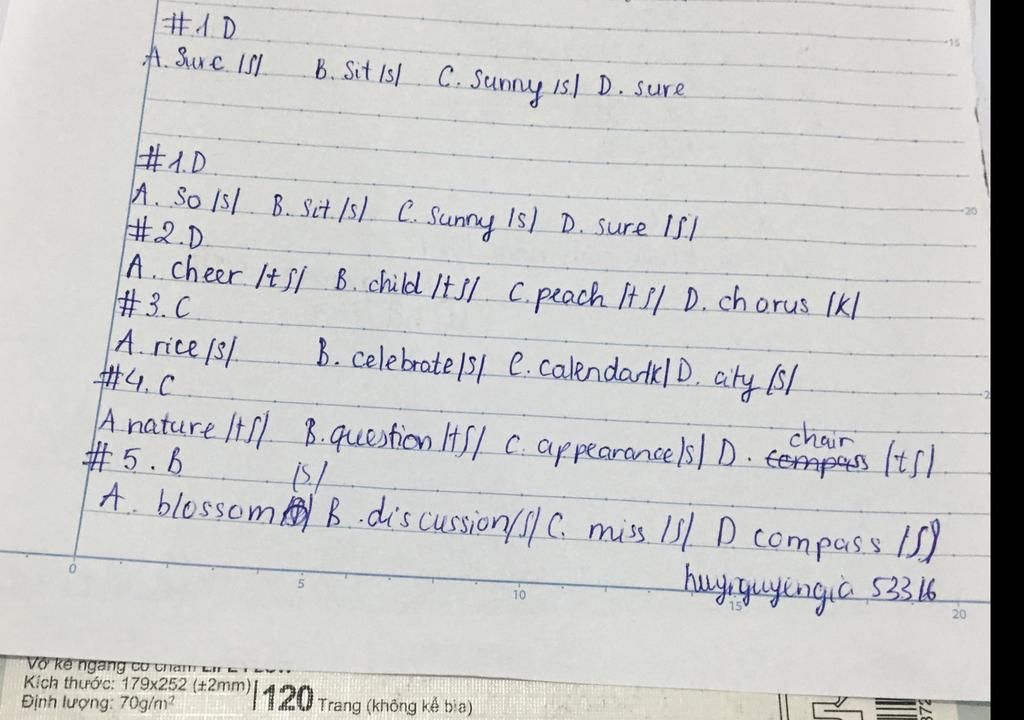 #1.D
A. Sure /ʃ/ B. Sit /s/ C. Sunny /s/ D. sure
#1.D
A. So /s/ B. Sit /s/ C. Sunny /s/ D. sure /ʃ/
#2.D
A. cheer /tʃ/ B. child /tʃ/ C. peach /tʃ/ D. chorus /k/
#3.C
A. rice /s/ B. celebrate /s/ C. calendar /k/ D. city /s/
#4.C
A nature /tʃ/ B. question /tʃ/ C. appearance /s/ D. chair /tʃ/
#5.B
A. blossom /s/ B. discussion /ʃ/ C. miss /s/ D compass /s/
huynguyengia 53316
0 5 10 15 20
15
20
Kích thước: 179x252 (±2mm)
Định lượng: 70g/m²
120 Trang (không kể bìa)